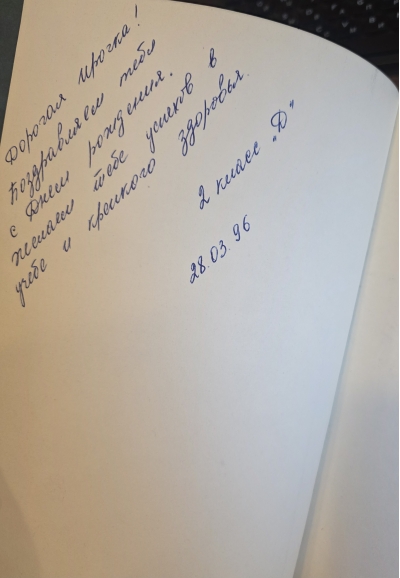 Дорогая Ирочка!
Поздравляем тебя
с Днём рождения.
Желаем тебе успехов в
учёбе и крепкого здоровья.
2 класс „Д"
28.03.96